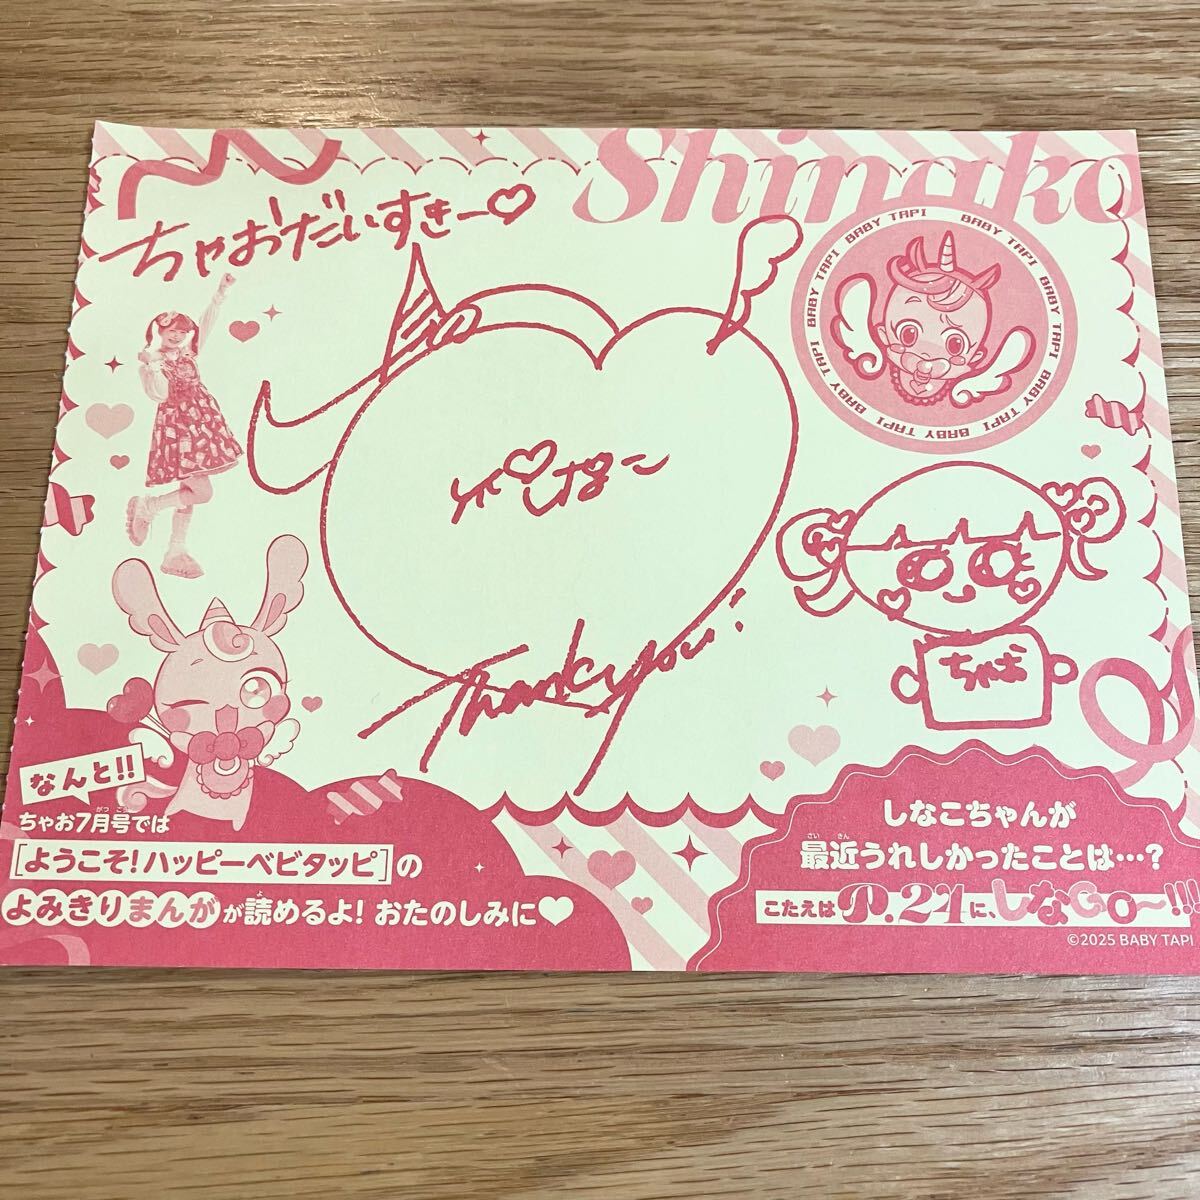 Shinako
ちゃおだいすきー♡
BABY TAPI BABY TAPI BABY TAPI BABY TAPI BABY TAPI BABY TAPI BABY TAPI
しなこ
Thank you!
ちゃお
なんと!!
ちゃお7月号では
[ようこそ!ハッピーベビタッピ]の
よみきりまんがが読めるよ! おたのしみに♥
しなこちゃんが
最近うれしかったことは…?
こたえはP.24に、しなGO〜!!!
©2025 BABY TAPI